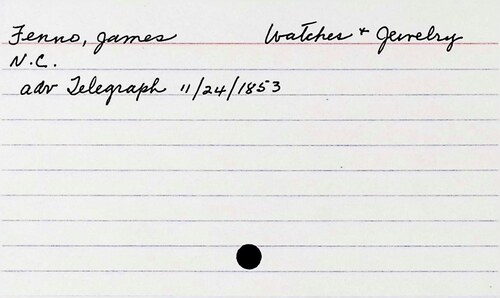 Fenno, James Watches + Jewelry
N.C.
adv Telegraph 11/24/1853